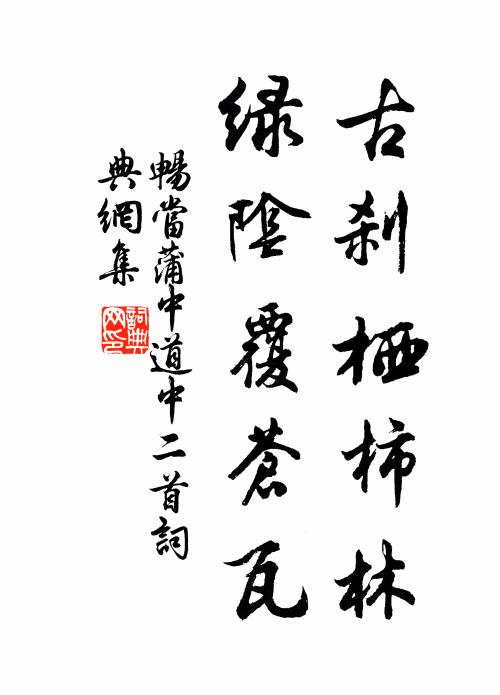 古刹栖柿林
绿陰覆蒼瓦
暢當蒲中道中二首詞
典網集
詞典
网印